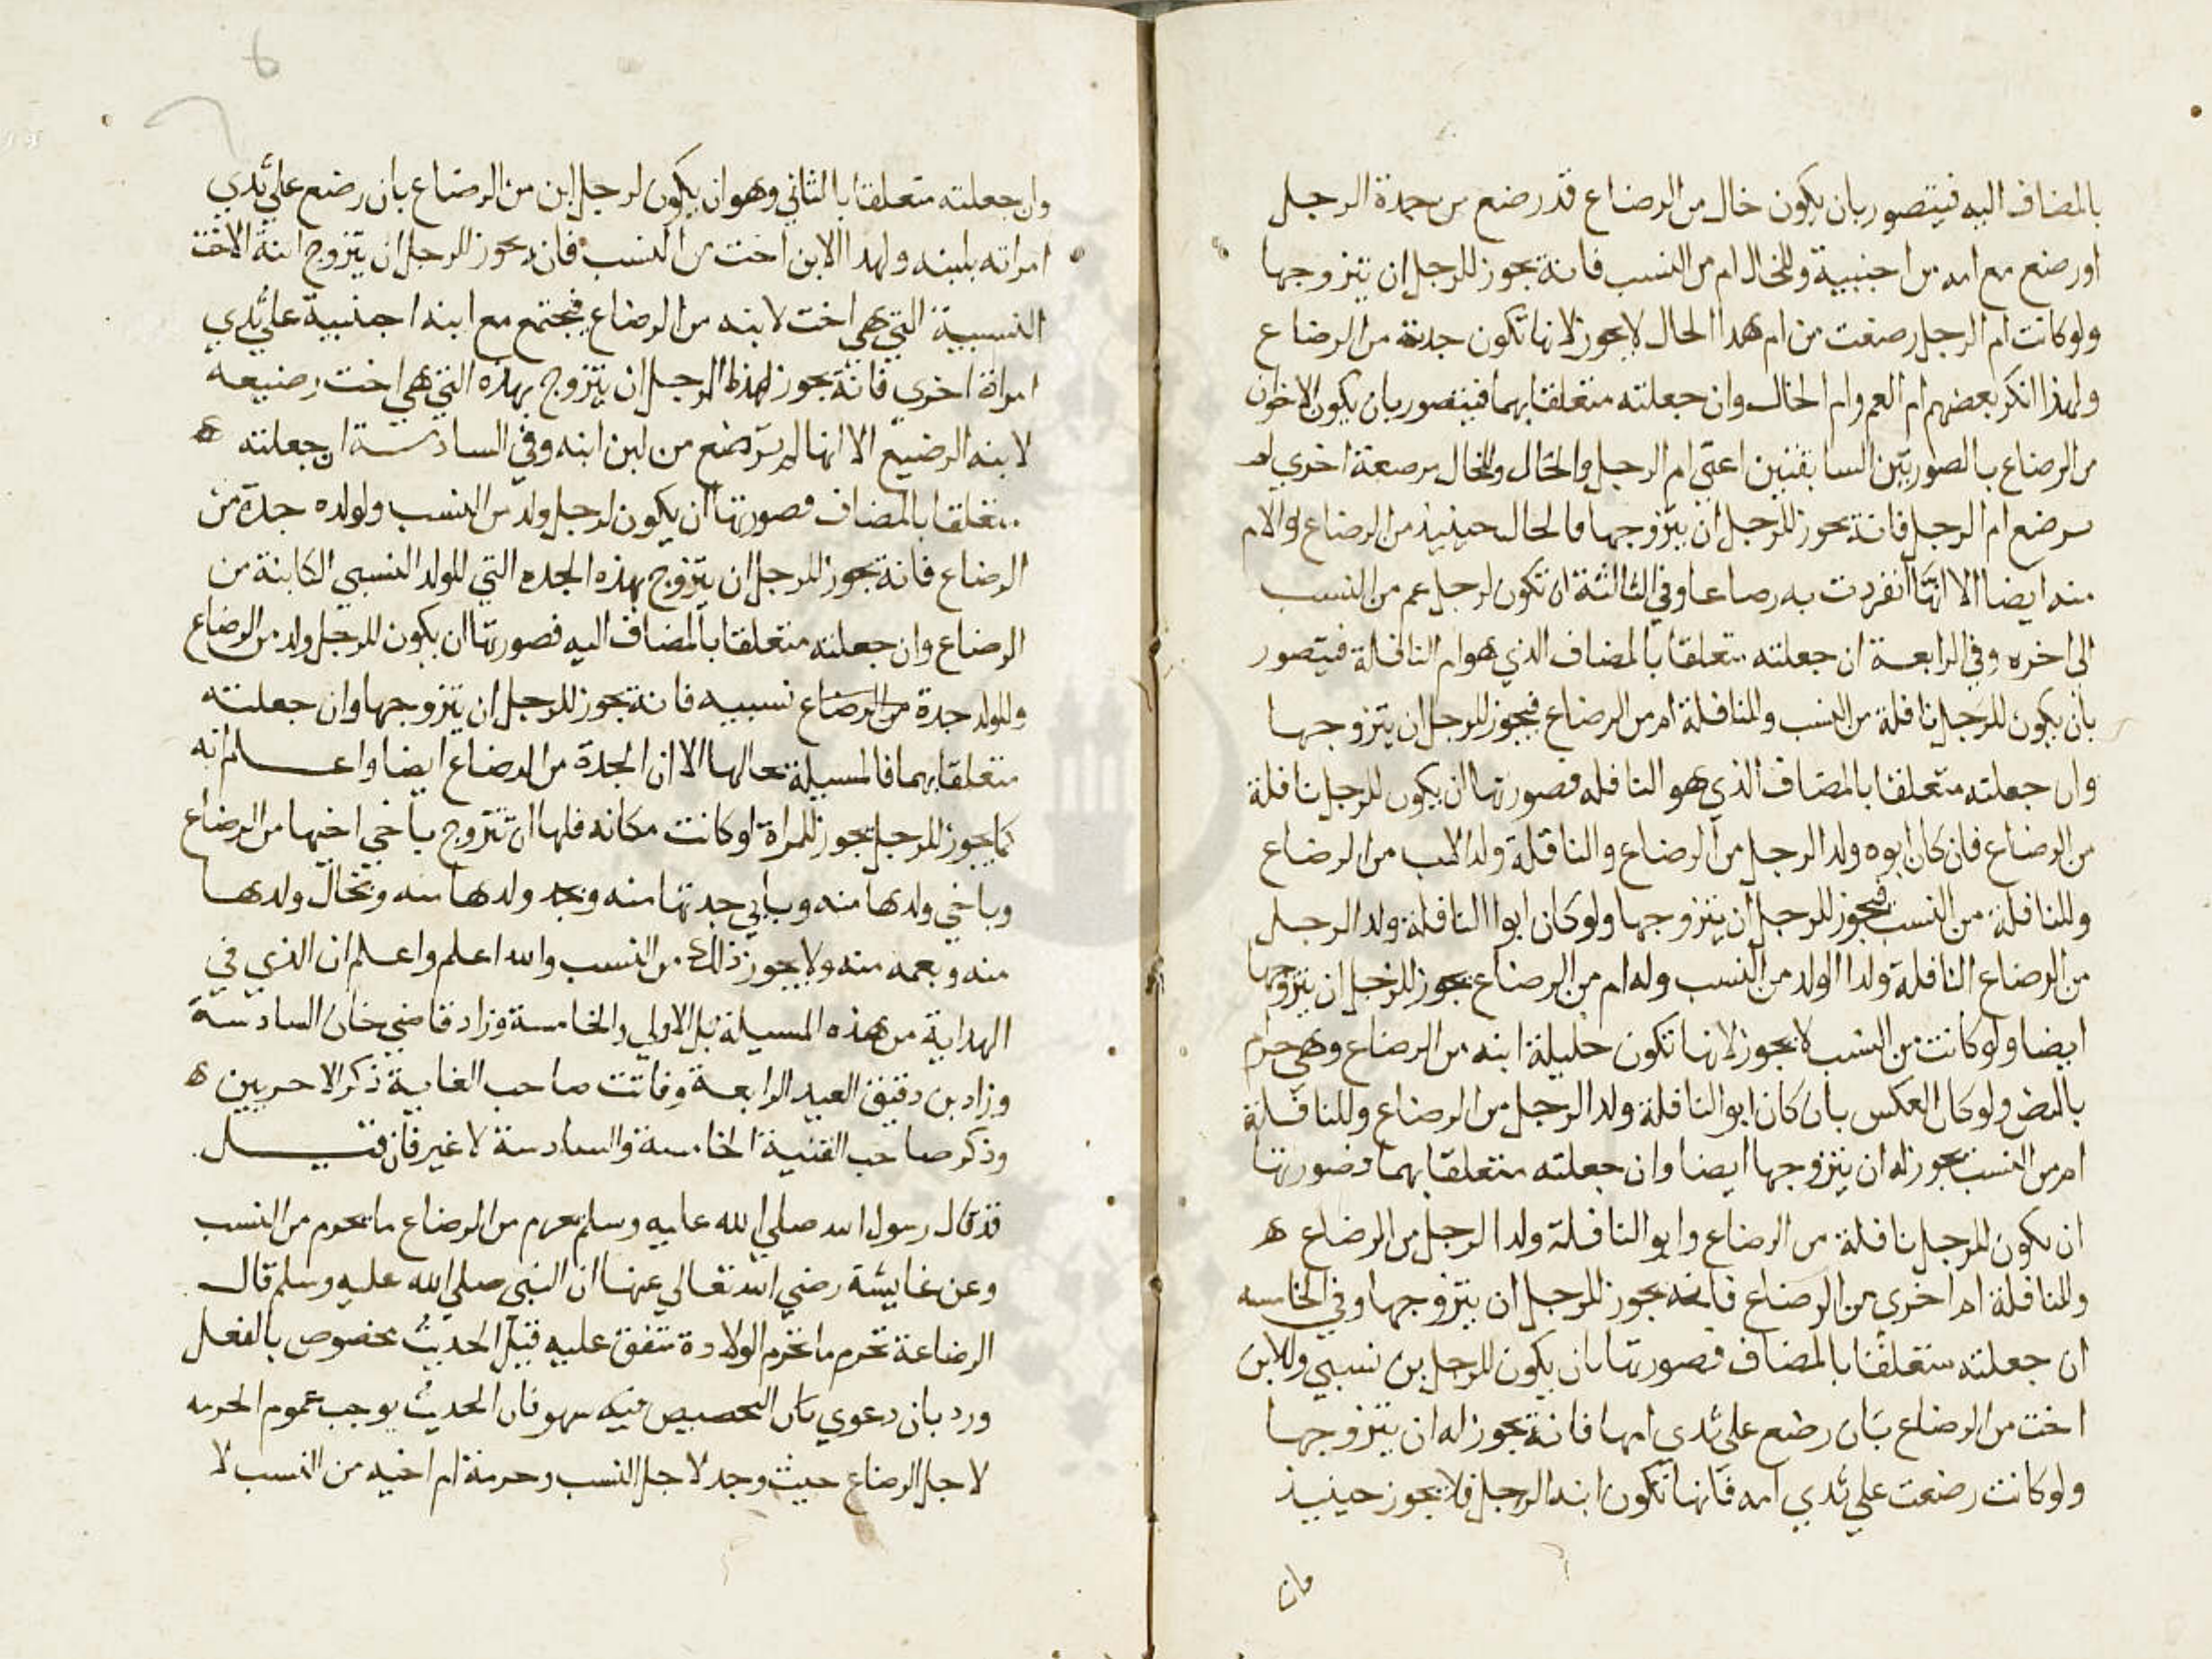 بالمضاف اليه فيتصور بان يكون خال من الرضاع قد رضع من جدة الرجل
او رضع مع امه من اجنبية وللخال ام من النسب فانه يجوز للرجل ان يتزوجها
ولو كانت ام الرجل رضعت من ام هذا الخال لا يجوز لانها تكون جدته من الرضاع
ولهذا انكر بعضهم ام العم وام الخال وان جعلته متعلقا بهما فيتصور بان يكون الاخوان
من الرضاع بالصورتين السابقتين اعني ام الرجل والخال وللخال مرضعة اخري لم
يرضع ام الرجل فانه يجوز للرجل ان يتزوجها فالخال حينيذ من الرضاع والام
منه ايضا الا انها انفردت به رضاعا وفي الثالثة ان تكون لرجل عم من النسب
الي اخره وفي الرابعة ان جعلته متعلقا بالمضاف الذي هو ام النافلة فيتصور
بان يكون للرجل نافلة من النسب وللنافلة ام من الرضاع فيجوز للرجل ان يتزوجها
وان جعلته متعلقا بالمضاف الذي هو النافله فصورتها ان يكون للرجل نافلة
من الرضاع فان كان ابوه ولد الرجل من الرضاع والنافلة ولد الاب من الرضاع
وللنافلة من النسب فيجوز للرجل ان يتزوجها ولو كان ابوا النافلة ولد الرجل
من الرضاع النافلة ولد الولد من النسب وله ام من الرضاع يجوز للرجل ان يتزوجها
ايضا ولو كانت من النسب لا يجوز لانها تكون حليلة ابنه من الرضاع وهي حرام
بالنص ولو كان العكس بان كان ابو النافلة ولد الرجل من الرضاع وللنافلة
ام من النسب يجوز له ان يتزوجها ايضا وان جعلته متعلقا بهما فصورتها
ان يكون للرجل نافلة من الرضاع وابو النافلة ولد الرجل من الرضاع ه
وللنافلة ام اخري من الرضاع فانه يجوز للرجل ان يتزوجها وفي الخامسه
ان جعلته متعلقا بالمضاف فصورتها بان يكون للرجل بن نسبي وللابن
اخت من الرضاع بان رضع علي ثدي امها فانه يجوز له ان يتزوجها
ولو كانت رضعت علي ثدي امه فانها تكون ابنه الرجل فلا يجوز حينيذ
وان
وان جعلته متعلقا بالثاني وهو ان يكون لرجل ابن من الرضاع بان رضع علي ثدي
امراته بلبنه ولهذا الابن اخت من النسب فانه يجوز للرجل ان يتزوج ابنة الاخت
النسبية التي هي اخت لابنه من الرضاع فيجتمع مع ابنه اجنبية علي ثدي
امراة اخري فانه يجوز لهذا الرجل ان يتزوج بهذه التي هي اخت رضيعه
لابنه الرضيع الا انها لم ترضع من لبن ابنه وفي السادسة ان جعلته ه
متعلقا بالمضاف فصورتها ان يكون لرجل ولد من النسب ولولده جدة من
الرضاع فانه يجوز للرجل ان يتزوج بهذه الجده التي للولد النسبي الكاينة من
الرضاع وان جعلته متعلقا بالمضاف اليه فصورتها ان يكون للرجل ولد من الرضاع
وللولد جدة من الرضاع نسبيه فانه يجوز للرجل ان يتزوجها وان جعلته
متعلقا بهما فالمسيلة بحالها الا ان الجدة من الرضاع ايضا واعلم انه
كما يجوز للرجل يجوز للمراة لو كانت مكانه فلها ان تتزوج باخي اخيها من الرضاع
وباخي ولدها منه وبابي جدتها منه وبجد ولدها منه وبخال ولدها
منه وبعمه منه ولا يجوز ذلك من النسب والله اعلم واعلم ان الذي في
الهداية من هذه المسيلة بل الاولي والخامسة وزاد قاضي خان السادسة
وزاد بن دقيق العيد الرابعة وفاتت صاحب الغاية ذكر الاخريين ه
وذكر صاحب القنية الخامسة والسادسة لا غير فان قيل
قد قال رسول الله صلي الله عليه وسلم يحرم من الرضاع ما يحرم من النسب
وعن عايشة رضي الله تعالي عنها ان النبي صلي الله عليه وسلم قال
الرضاعة تحرم ما تحرم الولادة متفق عليه قيل الحديث مخصوص بالفعل
ورد بان دعوي بان التخصيص فيه سهو فان الحديث يوجب عموم الحرمه
لاجل الرضاع حيث وجد لاجل النسب وحرمة ام اخيه من النسب لا